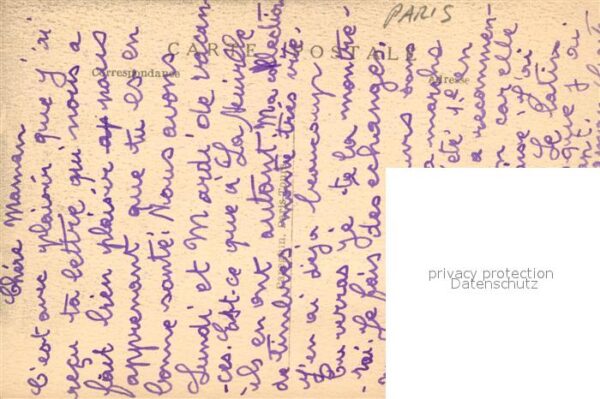 PARIS
CARTE POSTALE
Correspondance
Adresse
Chère Maman
C'est avec plaisir que j'ai
reçu ta lettre qui nous a
fait bien plaisir a nous
apprenant que tu es en
bonne santé. Nous avons
Lundi et Mardi de vacan
-ces. Est-ce que à La Neuville
ils en ont autant Ma collection
de Timbres augmente très vite.
J'en ai déjà beaucoup
tu verras je te la montre-
rai. Je fais des échanges
marche
été 1e en
recommen-
car elle
j'ai
Le latin
que j'ai
privacy protection
Datenschutz